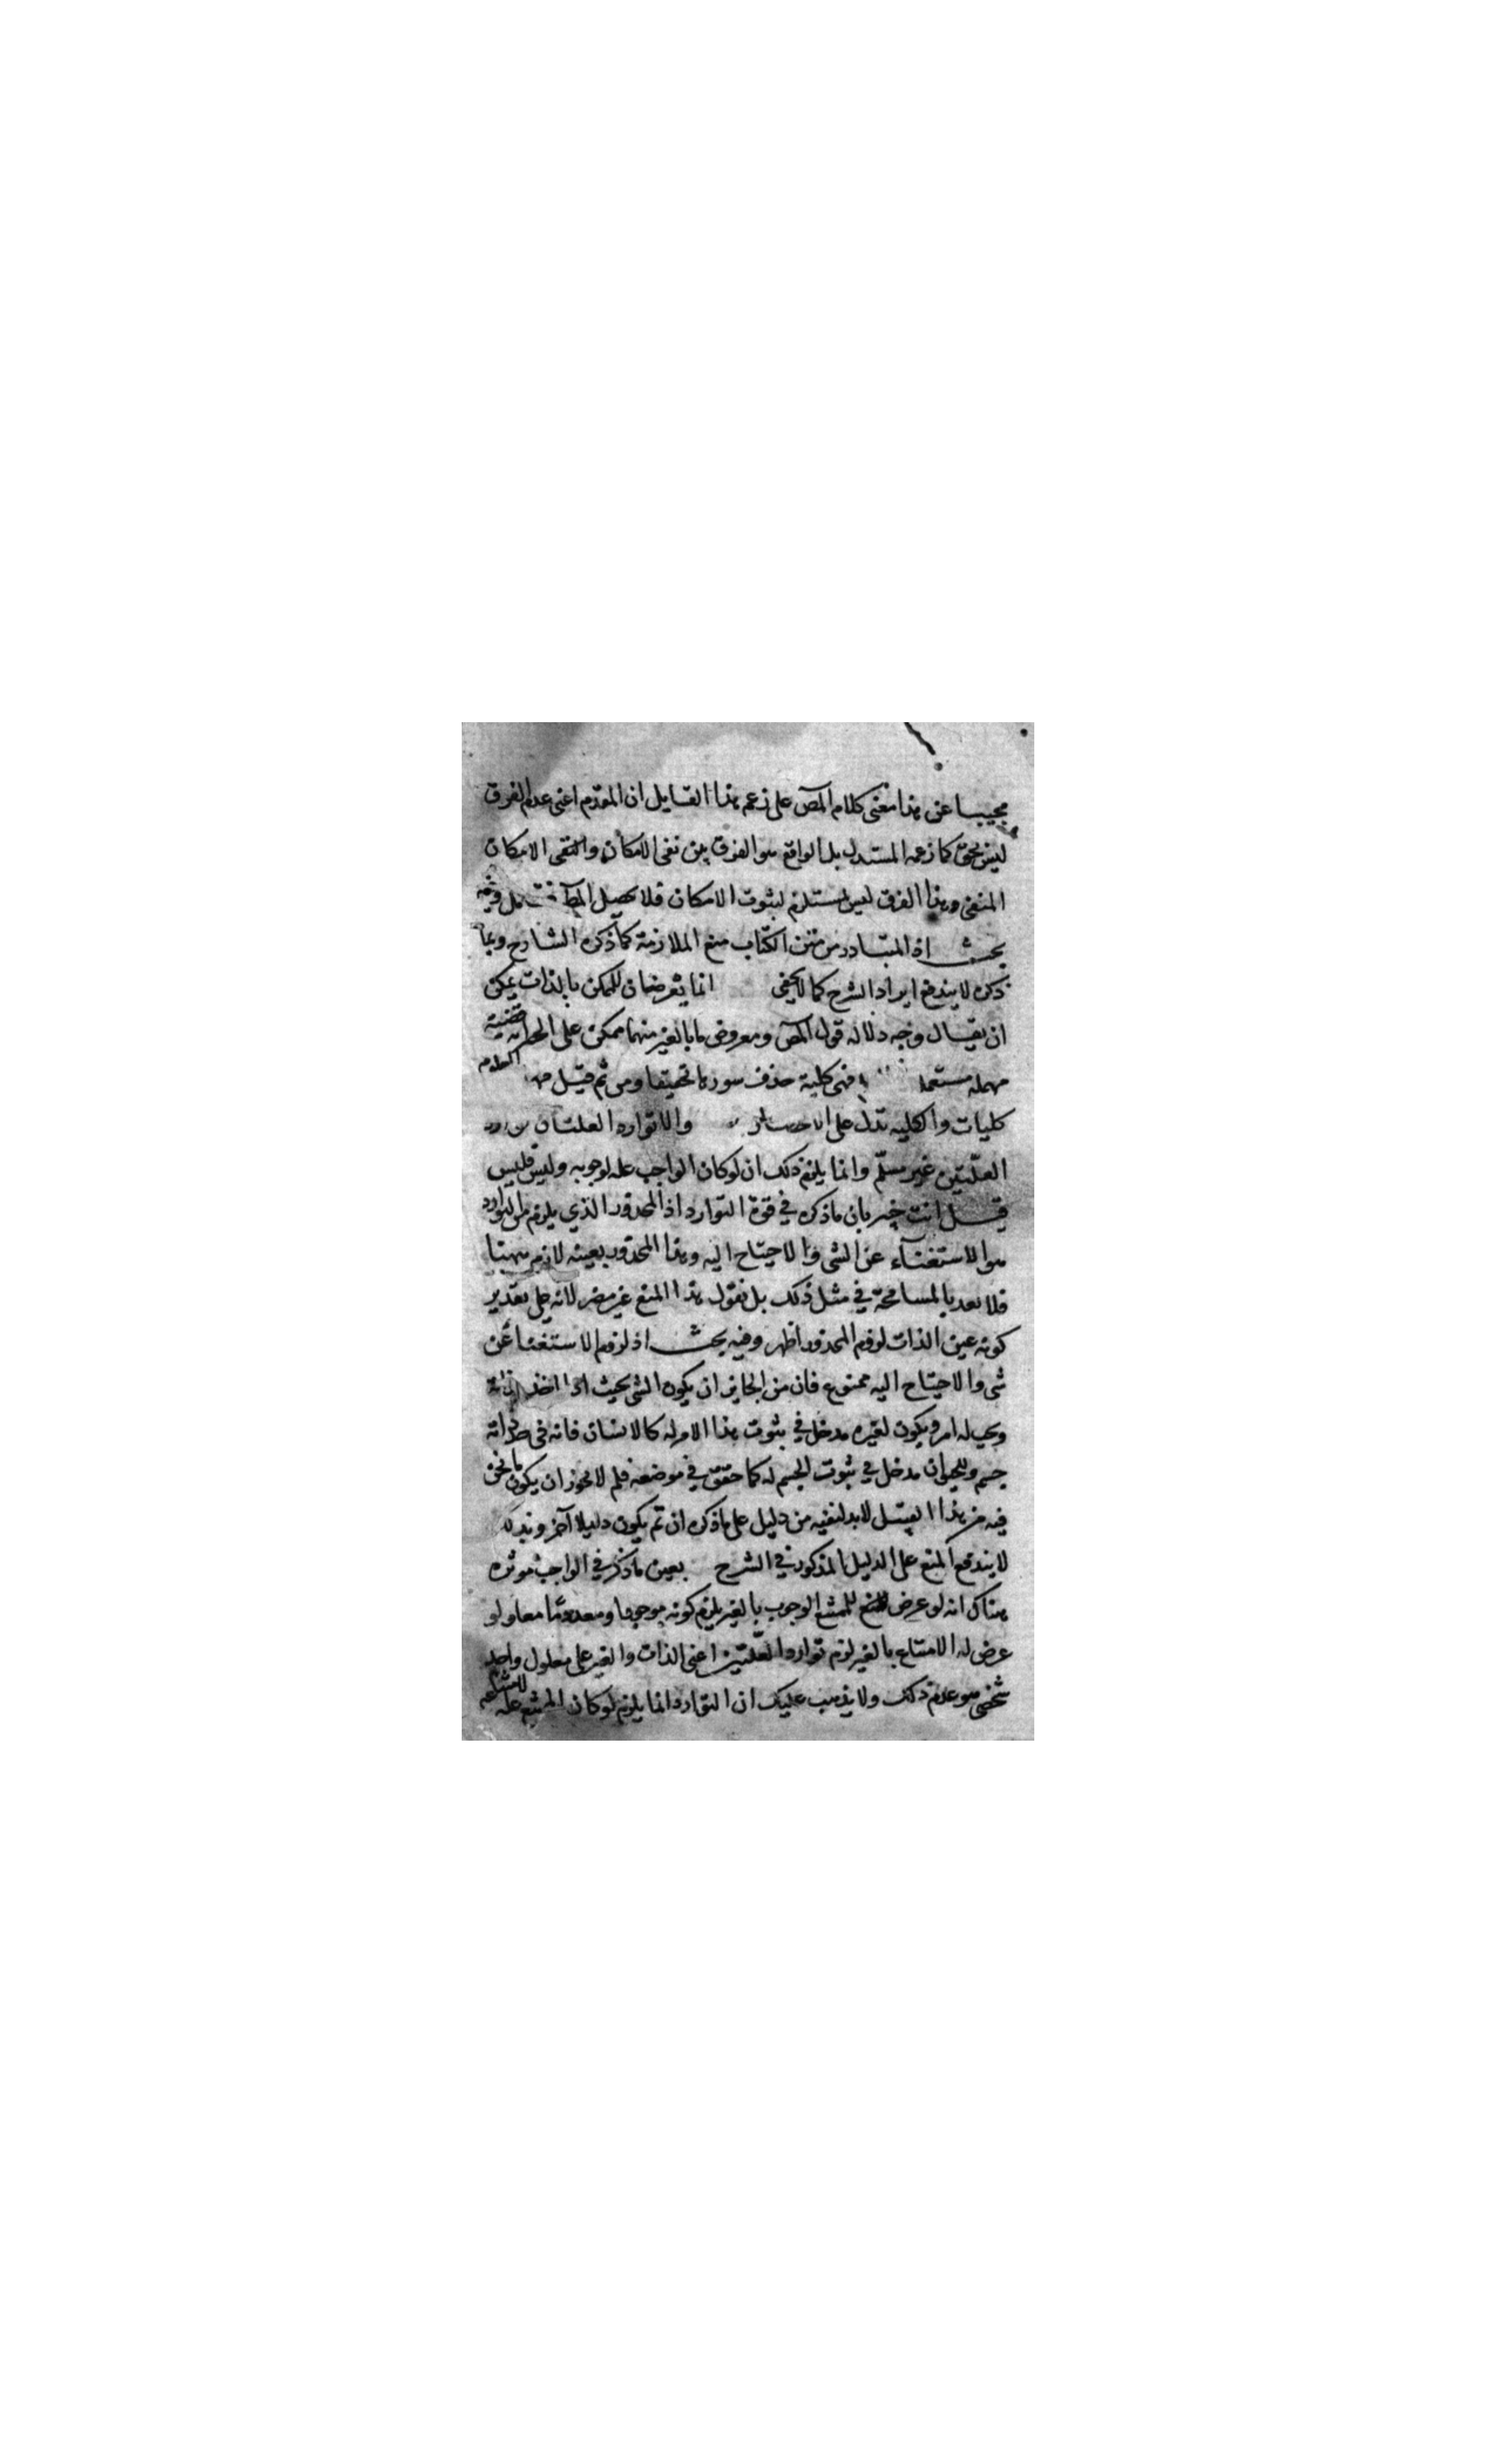 مجيبا عن هذا معنى كلام المص على زعم هذا القايل ان المقدم اعنى عدم الفرق
ليس بحق كما زعمه المستدل بل الواقع هو الفرق بين نفى الامكان والنفى الامكان
المنفى وهذا الفرق ليس بمستلزم لثبوت الامكان فلا يحصل المط وفيه
بحث اذ المتبادر من متن الكتاب منع الملازمة كما ذكره الشارح وبما
ذكره لا يندفع ايراد الشرح كما لا يخفى انما يعرضان للممكن بالذات يمكن
ان يقال وجه دلاله قول المص ومعروض ما بالغير منهما ممكن على الحصر انه قضية
مهمله فهى كلية حذف سورها تحقيقا ومن ثم قيل
كليات والكليه تدل على والا توارد العلتان
العلتين غير مسلم وانما يلزم ذلك ان لو كان الواجب عله لوجوبه وليس فليس
قيل انت خبير بان ما ذكره فى قوة التوارد اذ المحذور الذي يلزم من التوارد
هو الاستغناء عن الشى والاحتياج اليه وهذا المحذور بعينه لازم ههنا
فلا بعد بالمسامحة فى مثل ذلك بل نقول هذا المنع غير مضر لانه على تقدير
كونه عين الذات لزوم المحذور اظهر وفيه بحث اذ لزوم الاستغنا عن
شى والاحتياج اليه ممنوع فان من الجايز ان يكون الشى بحيث اذا اخذ
وجب له امر ويكون لغيره مدخل فى ثبوت هذا الامر له كالانسان فانه فى حد ذاته
جسم وللحيوان مدخل فى ثبوت الجسم له كما حقق فى موضعه فلم لا يجوز ان يكون ما نحن
فيه من هذا القبيل لابد لنفيه من دليل على ما ذكره ان تم يكون دليلا آخر وبذلك
لا يندفع المنع على الدليل المذكور فى الشرح بعين ما ذكر فى الواجب
هناك انه لو عرض للممتنع الوجوب بالغير يلزم كونه موجودا ومعدوما معا ولو
عرض له الامتناع بالغير لزم توارد العلتين اعنى الذات والغير على معلول واحد
شخصى هو عدم ذلك ولا يذهب عليك ان التوارد انما يلزم لو كان الممتنع عله لامتناعه